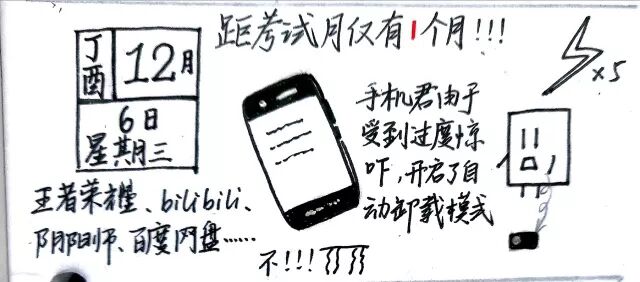 距考试月仅有1个月!!!
丁酉
12月
6日
星期三
×5
手机君由于
受到过度惊
吓,开启了自
动卸载模式
王者荣耀、bilibili、
阴阳师、百度网盘……
不!!!